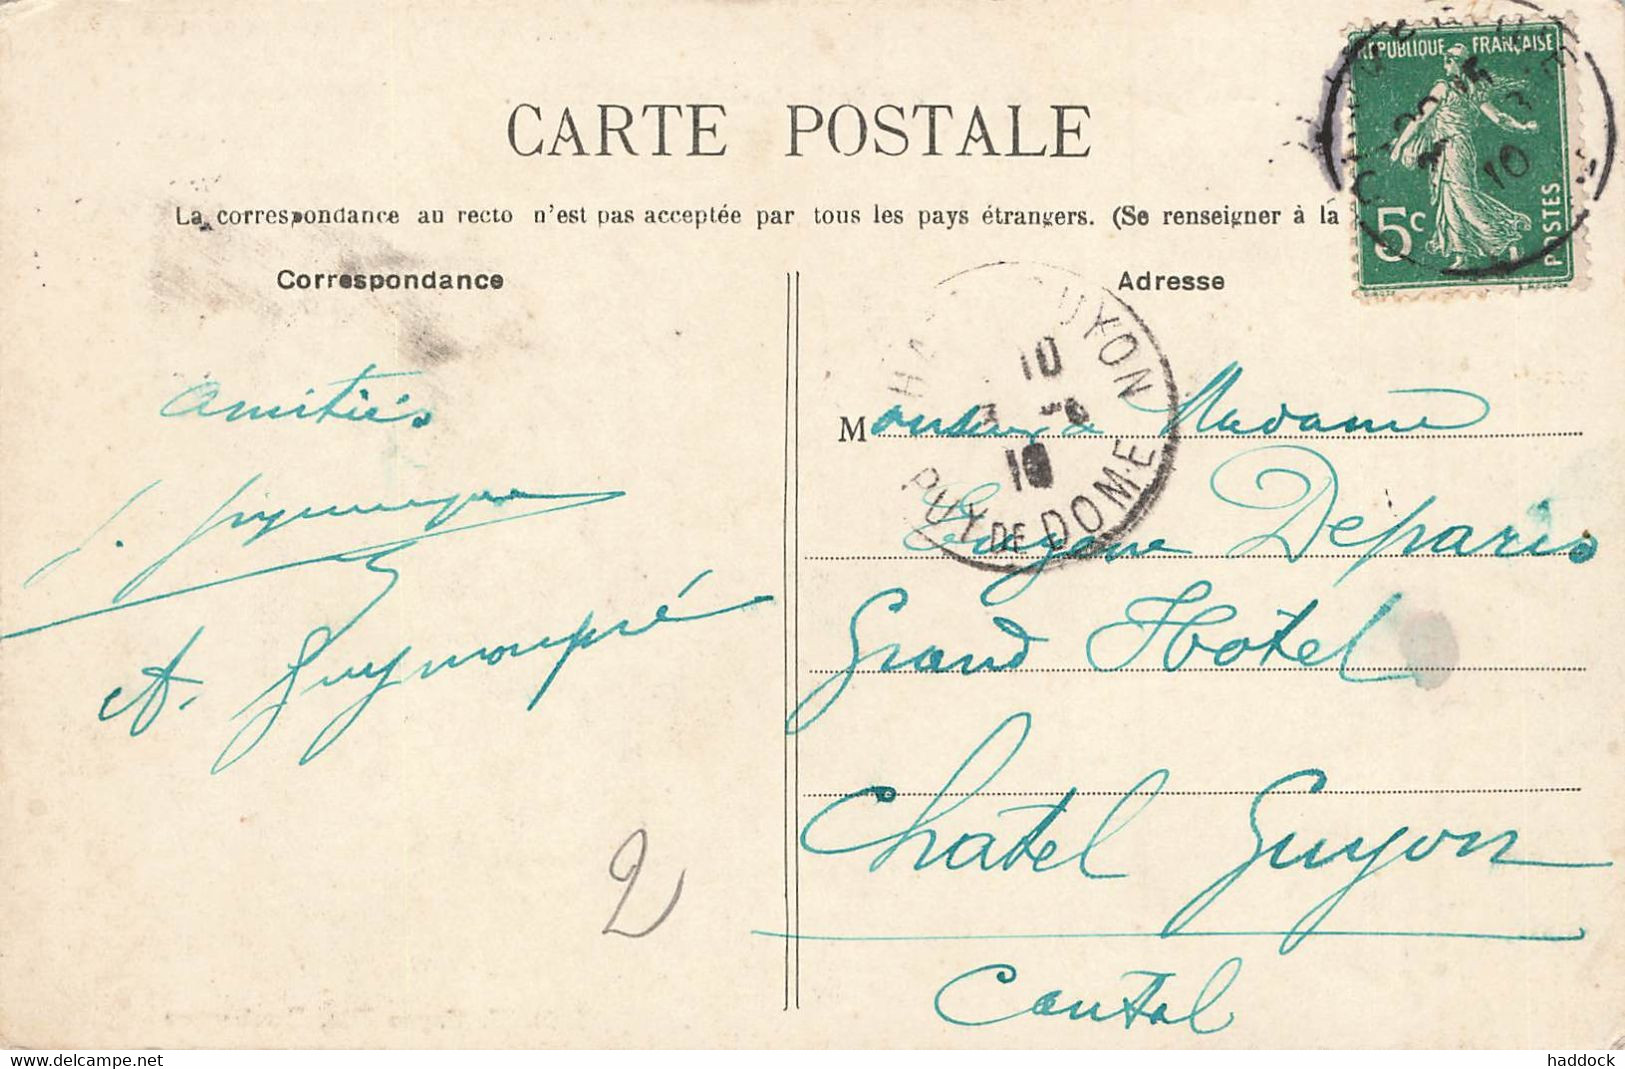 CARTE POSTALE
La correspondance au recto n'est pas acceptée par tous les pays étrangers. (Se renseigner à la
Correspondance
Adresse
RÉPUBLIQUE FRANÇAISE
5c
POSTES
10
UYON
10
10
PUY DE DOME
amitiés
A. Guymonpré
Monsieur & Madame
Eugène Deparis
Grand Hôtel
Châtel Guyon
Cantal
2
www.delcampe.net
haddock